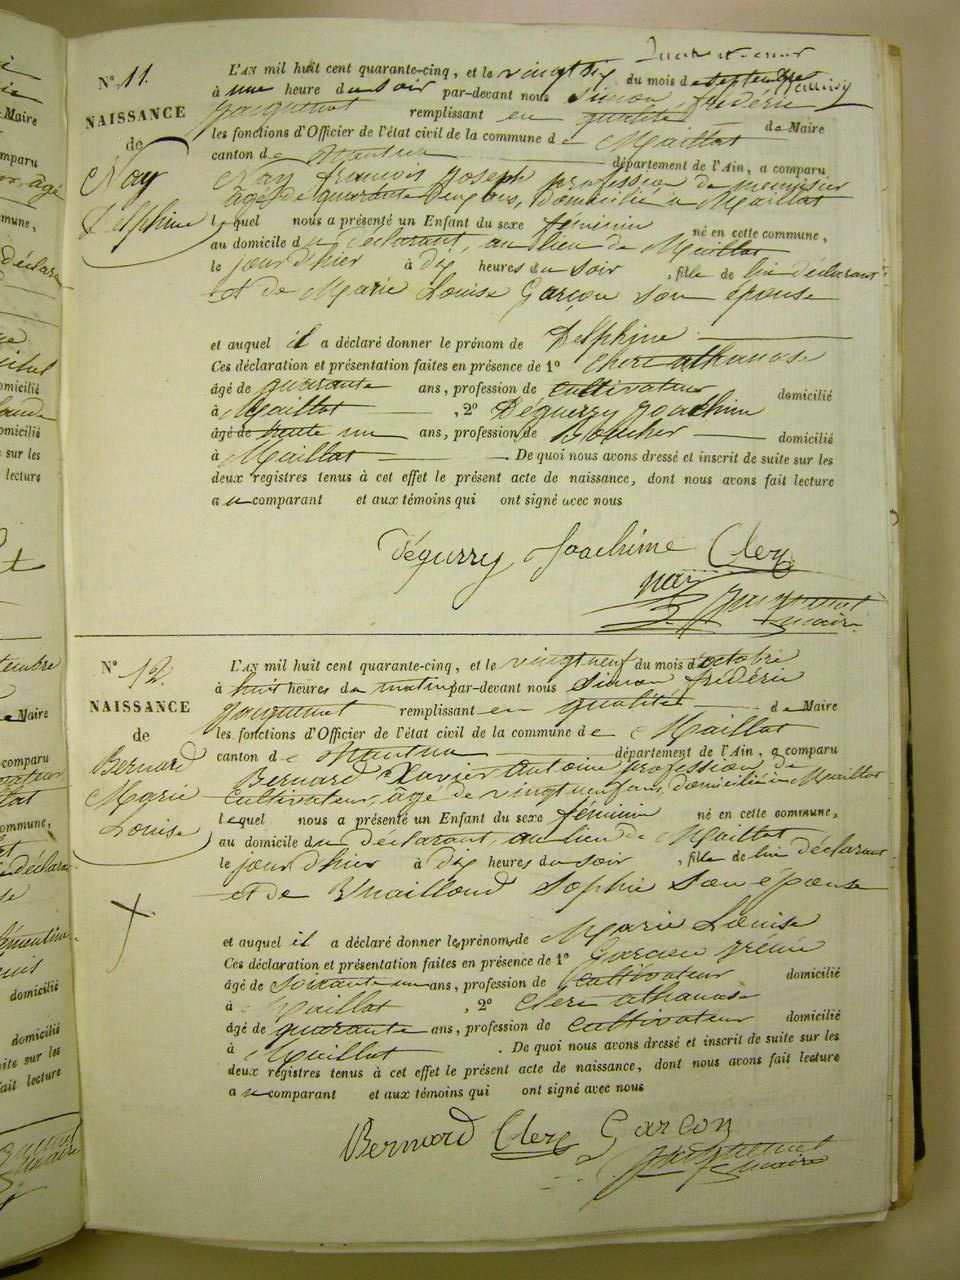 N° 11.
NAISSANCE
de
Nay
Delphine
L'AN mil huit cent quarante-cinq, et le vingt six du mois de septembre
à une heure du soir par-devant nous Simon frédéric
Jacquemet remplissant en qualité de Maire
les fonctions d'Officier de l'état civil de la commune de Maillat
canton de Nantua département de l'Ain, a comparu
Nay françois Joseph profession de menuisier
âgé de quarante cinq ans, domicilié à Maillat
lequel nous a présenté un Enfant du sexe féminin né en cette commune,
au domicile du déclarant, au lieu de Maillat
le jour d'hier à dix heures du soir , fille de lui déclarant
et de Marie Louise Garçon son épouse
et auquel il a déclaré donner le prénom de Delphine
Ces déclaration et présentation faites en présence de 1° Clerc athanase
âgé de quarante ans, profession de cultivateur domicilié
à Maillat , 2° Déguerry Joachim
âgé de trente un ans, profession de Boucher domicilié
à Maillat . De quoi nous avons dressé et inscrit de suite sur les
deux registres tenus à cet effet le présent acte de naissance, dont nous avons fait lecture
au comparant et aux témoins qui ont signé avec nous
Déguerry Joachime Clerc
nay Jacquemet
maire
N° 12.
NAISSANCE
de
Bernard
Marie
Louise
L'AN mil huit cent quarante-cinq, et le vingt neuf du mois d'octobre
à huit heures du matin par-devant nous Simon frédéric
Jacquemet remplissant en qualité de Maire
les fonctions d'Officier de l'état civil de la commune de Maillat
canton de Nantua département de l'Ain, a comparu
Bernard Xavier Antoine profession de
cultivateur, âgé de vingt neuf ans, domicilié à Maillat
lequel nous a présenté un Enfant du sexe féminin né en cette commune,
au domicile du déclarant, au lieu de Maillat
le jour d'hier à dix heures du soir , fille de lui déclarant
et de Sophie son épouse
et auquel il a déclaré donner le prénom de Marie Louise
Ces déclaration et présentation faites en présence de 1° Garçon
âgé de soixante un ans, profession de cultivateur domicilié
à Maillat , 2° Clerc athanase
âgé de quarante ans, profession de cultivateur domicilié
à Maillat . De quoi nous avons dressé et inscrit de suite sur les
deux registres tenus à cet effet le présent acte de naissance, dont nous avons fait lecture
au comparant et aux témoins qui ont signé avec nous
Bernard Clerc Garçon
Jacquemet
maire